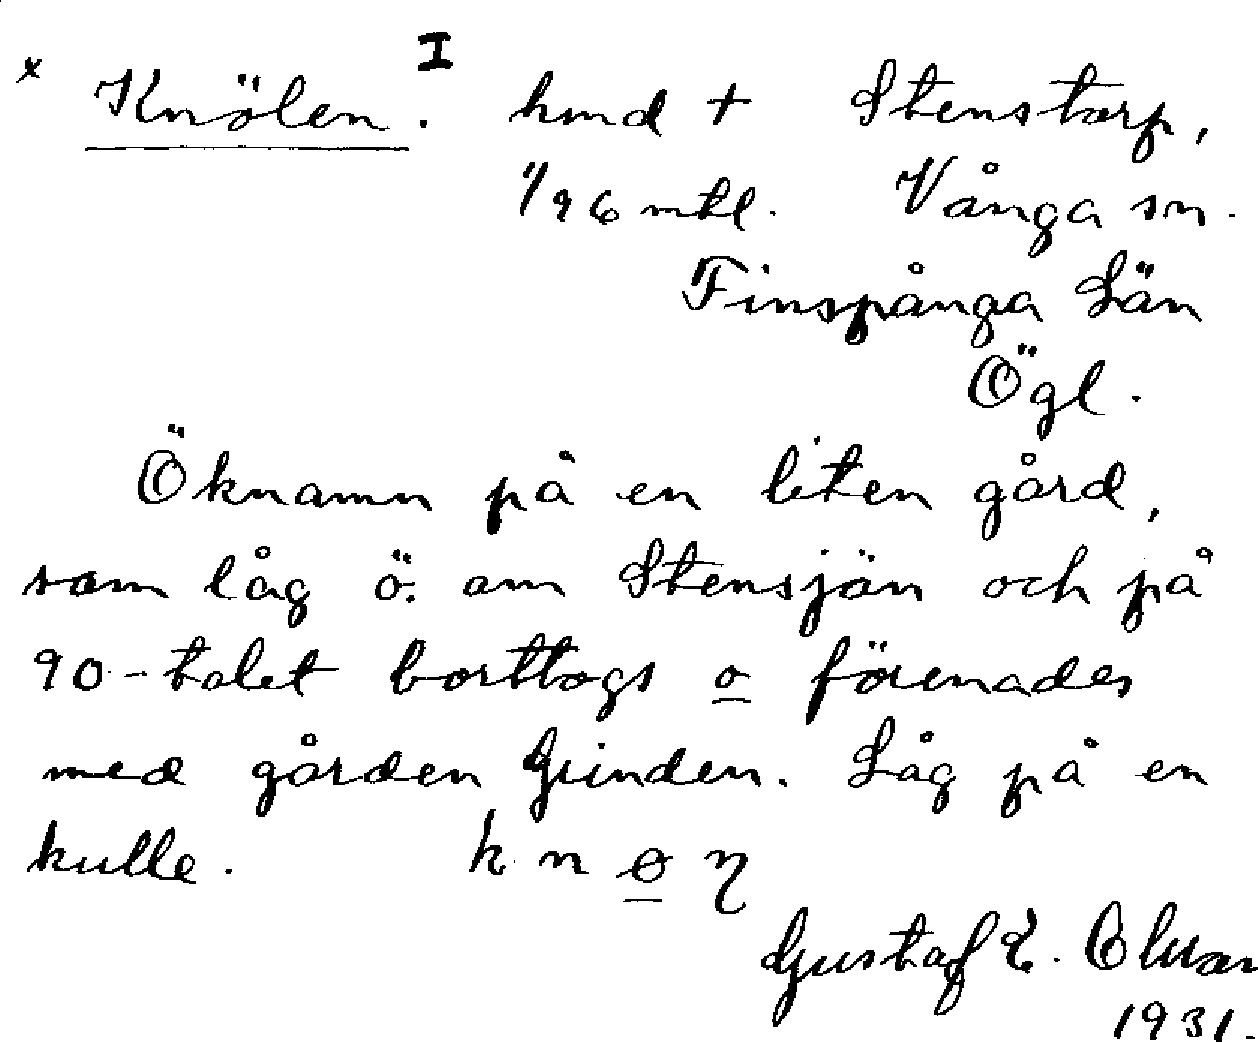 × Knölen. I hmd + Stenstorp,
1/96 mtl. Vånga sn.
Finspånga Län
Ögl.
Öknamn på en liten gård,
som låg ö. om Stensjön och på
90-talet borttogs o förenades
med gården Grinden. Låg på en
kulle. k n ɵ ŋ
Gustaf E. Olsson
1931.